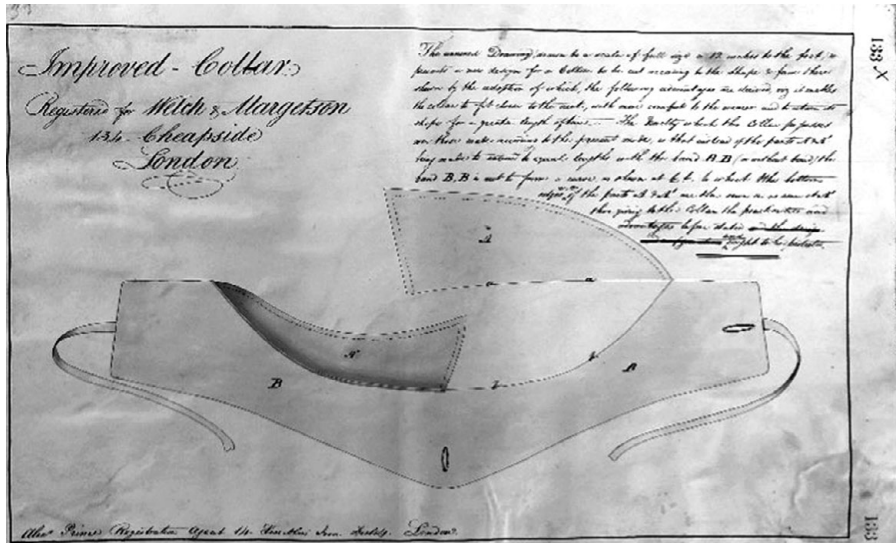 Improved - Collar
Registered for Welch & Margetson
134 Cheapside
London
The annexed Drawing drawn to a scale of full size or 12 inches to the foot, re
presents a new design for a Collar to be cut according to the shape & form there
shown by the adoption of which, the following advantages are derived, viz it enables
the collar to fit closer to the neck, with more comfort to the wearer and to retain its
shape for a greater length of time. — The Novelty which this Collar possesses
over those made according to the present mode, is that instead of the parts A & A'
being made to extend to equal lengths with the band B.B (
band B.B is cut to form a curve as shown at b.b. to which the bottom
edges of the parts A & A' are the
thus giving to the Collar the
advantages before stated
ought to be
A
a
a
A'
B
B
b
b
Alexr Prince Registration Agent 14 Lincolns Inn Fields London
133 X
133